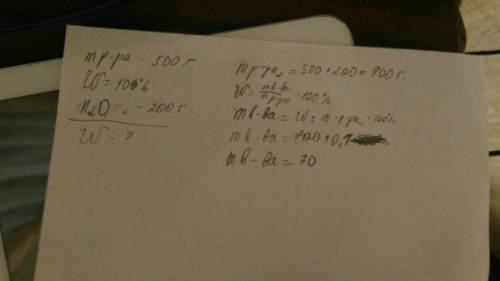 m р-ра - 500 г
W = 10%
H₂O - 200 г
W - ?
m р-ра₂ = 500 + 200 = 900 г.
W = m в-ва / m р-ра · 100%
m в-ва = W · m р-ра · 100%
m в-ва = 700 · 0,1
m в-ва = 70